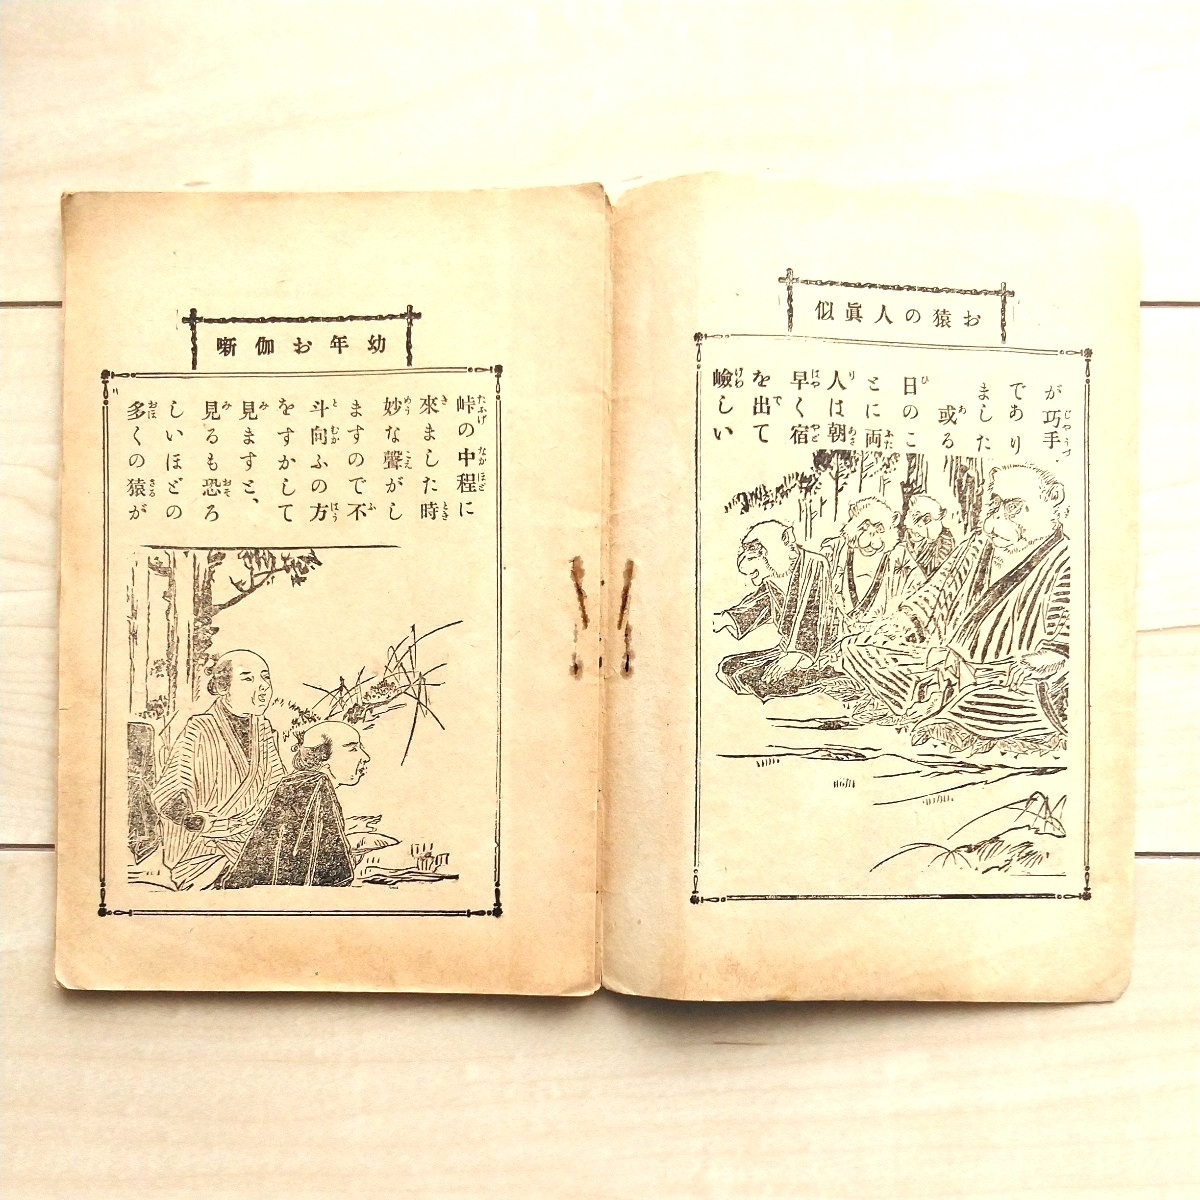 お猿の人眞似
が巧手
であり
ました
或る
日のこ
とに両
人は朝
早く宿
を出て
嶮しい
幼年お伽噺
峠の中程に
來ました時
妙な聲がし
ますので不
斗向ふの方
をすかして
見ますと、
見るも恐ろ
しいほどの
多くの猿が